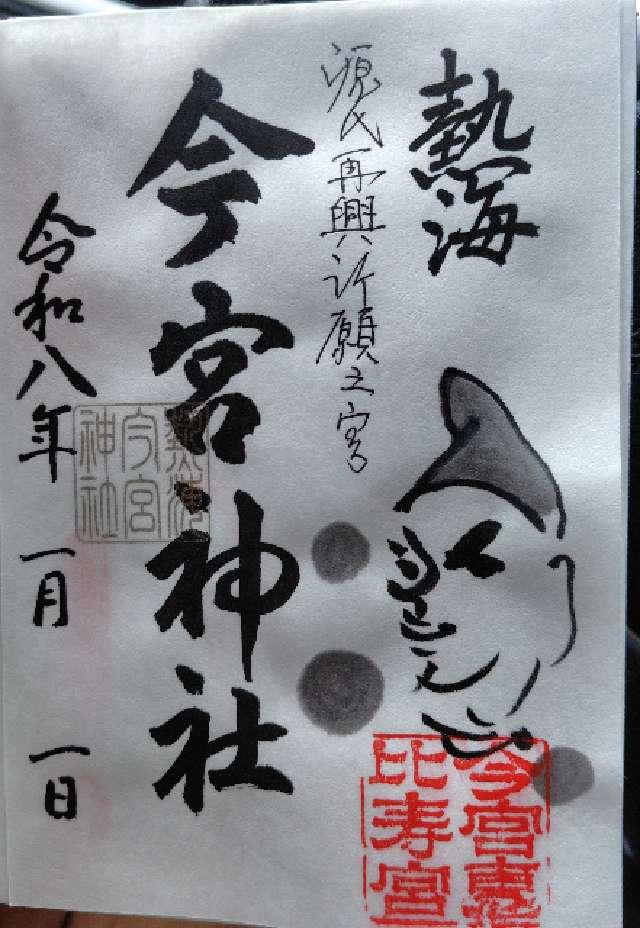 熱海
源氏再興祈願之宮
今宮神社
令和八年 一月 一日
熱海
今宮
神社
今宮恵
比寿宮